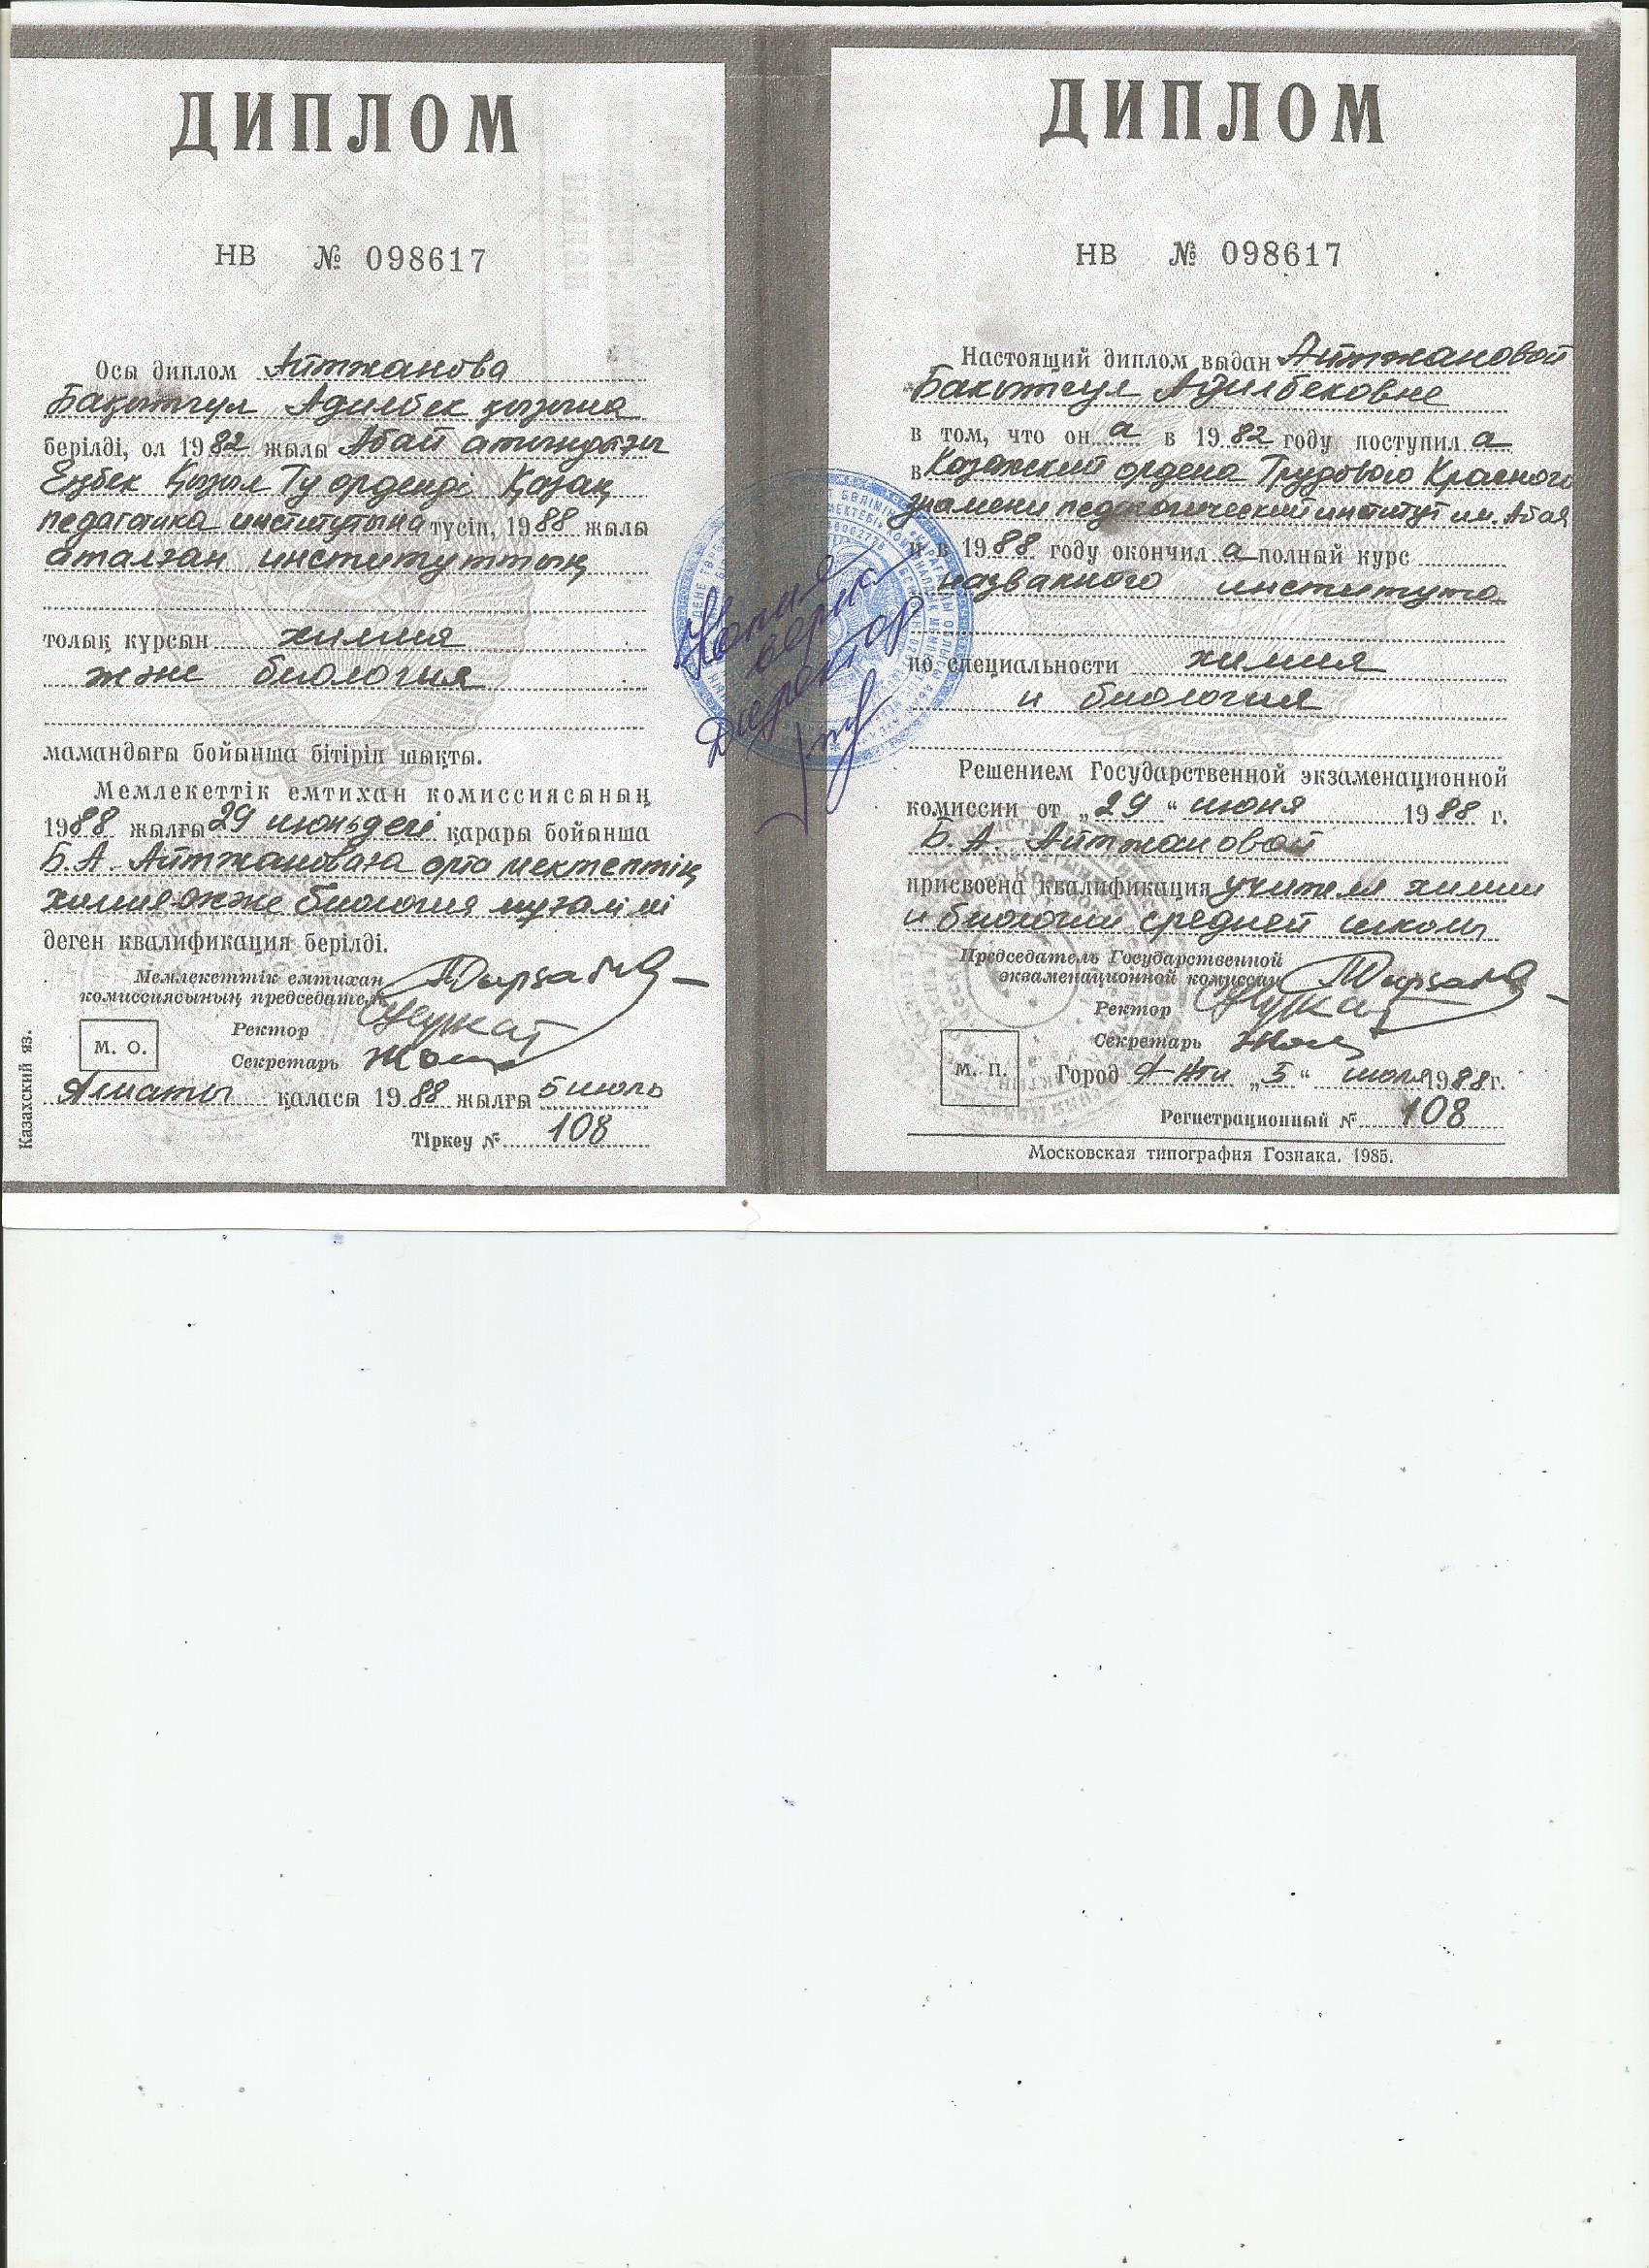 ДИПЛОМ
НВ № 098617
Осы диплом Айтжанова
Бақытгул Адилбек қызына
берілді, ол 1982 жылы Абай атындағы
Еңбек Қызыл Ту орденді Қазақ
педагогика институтына түсіп, 1988 жылы
аталған институттың
толық курсын химия
және биология
мамандығы бойынша бітіріп шықты.
Мемлекеттік емтихан комиссиясының
1988 жылғы 29 июньдегі қарары бойынша
Б.А. Айтжановаға орта мектептің
химия және биология мұғалімі
деген квалификация берілді.
Мемлекеттік емтихан
комиссиясының председателі
Ректор
М. О.
Секретарь
Алматы қаласы 1988 жылғы 5 июль
Тіркеу № 108
Казахский яз.
Копия
верна
Директор
ДИПЛОМ
НВ № 098617
Настоящий диплом выдан Айтжановой
Бакытгул Адилбековне
в том, что он а в 1982 году поступил а
в Казахский ордена Трудового Красного
знамени педагогический институт им. Абая
и в 1988 году окончил а полный курс
названного института
по специальности химия
и биология
Решением Государственной экзаменационной
комиссии от „29“ июня 1988 г.
Б. А. Айтжановой
присвоена квалификация учителя химии
и биологии средней школы
Председатель Государственной
экзаменационной комиссии
Ректор
Секретарь
М. П.
Город А-Ата „5“ июля 1988 г.
Регистрационный № 108
Московская типография Гознака. 1985.